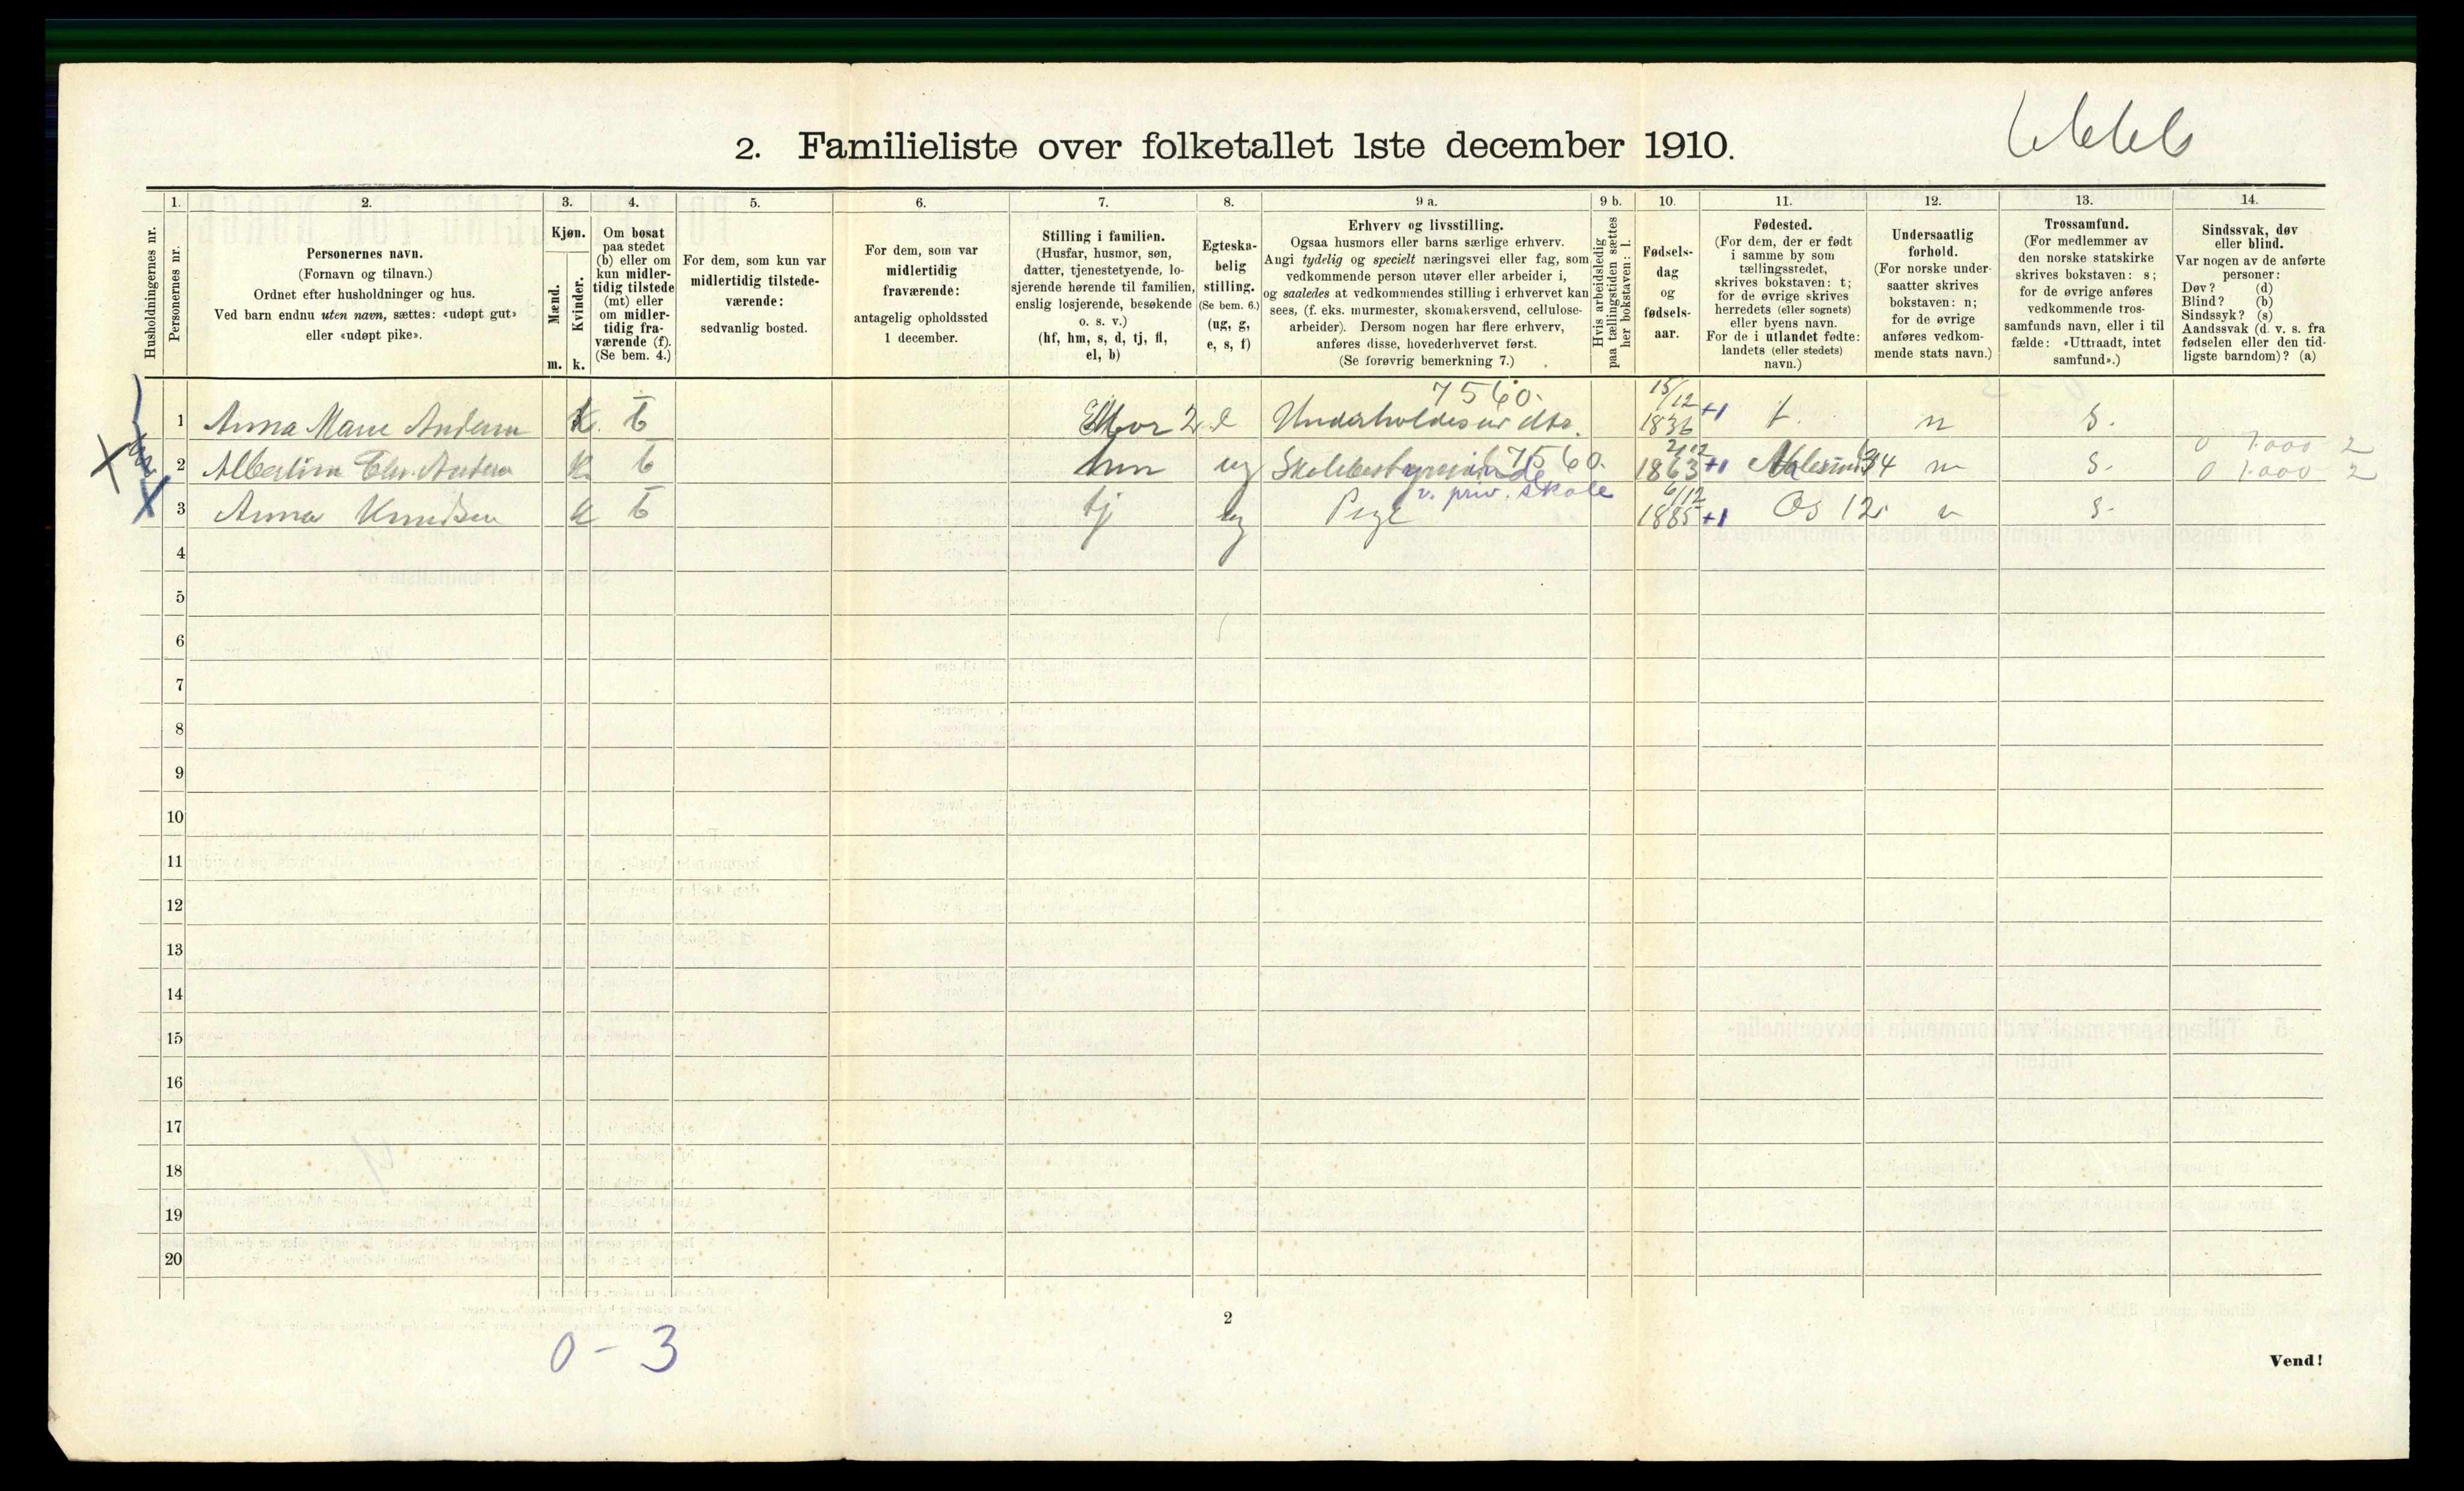 2. Familieliste over folketallet 1ste december 1910.
1. 2. 3. 4. 5. 6. 7. 8. 9 a. 9 b. 10. 11. 12. 13. 14.
Husholdningernes nr.
Personernes nr.
Personernes navn.
(Fornavn og tilnavn.)
Ordnet efter husholdninger og hus.
Ved barn endnu uten navn, sættes: «udøpt gut»
eller «udøpt pike».
Kjøn.
Mænd.
Kvinder.
m. k.
Om bosat
paa stedet
(b) eller om
kun midler-
tidig tilstede
(mt) eller
om midler-
tidig fra-
værende (f).
(Se bem. 4.)
For dem, som kun var
midlertidig tilstede-
værende:
sedvanlig bosted.
For dem, som var
midlertidig
fraværende:
antagelig opholdssted
1 december.
Stilling i familien.
(Husfar, husmor, søn,
datter, tjenestetyende, lo-
sjerende hørende til familien,
enslig losjerende, besøkende
o. s. v.)
(hf, hm, s, d, tj, fl,
el, b)
Egteska-
belig
stilling.
(Se bem. 6.)
(ug, g,
e, s, f)
Erhverv og livsstilling.
Ogsaa husmors eller barns særlige erhverv.
Angi tydelig og specielt næringsvei eller fag, som
vedkommende person utøver eller arbeider i,
og saaledes at vedkommendes stilling i erhvervet kan
sees, (f. eks. murmester, skomakersvend, cellulose-
arbeider). Dersom nogen har flere erhverv,
anføres disse, hovederhvervet først.
(Se forøvrig bemerkning 7.)
Hvis arbeidsledig
paa tællingstiden sættes
her bokstaven: l.
Fødsels-
dag
og
fødsels-
aar.
Fødested.
(For dem, der er født
i samme by som
tællingsstedet,
skrives bokstaven: t;
for de øvrige skrives
herredets (eller sognets)
eller byens navn.
For de i utlandet fødte:
landets (eller stedets)
navn.)
Undersaatlig
forhold.
(For norske under-
saatter skrives
bokstaven: n;
for de øvrige
anføres vedkom-
mende stats navn.)
Trossamfund.
(For medlemmer av
den norske statskirke
skrives bokstaven: s;
for de øvrige anføres
vedkommende tros-
samfunds navn, eller i til
fælde: «Uttraadt, intet
samfund».)
Sindssvak, døv
eller blind.
Var nogen av de anførte
personer:
Døv? (d)
Blind? (b)
Sindssyk? (s)
Aandssvak (d. v. s. fra
fødselen eller den tid-
ligste barndom)? (a)
7560.
15/12
1 Anna Marie Andersen k. b Mor 2 e Underholdes av dtr. 1836 +1 t. n s.
0 1.000 2
2 Albertine Chr. Andersen k b hm ug Skolebestyrerinde 7560. 1863 +1 Aalesund n s. 0 1.000 2
v. priv. skole
6/12
3 Anna Knudsen k b tj ug Pige 1885 +1 Os 12 n s.
4
5
6
7
8
9
10
11
12
13
14
15
16
17
18
19
20
2
0 - 3
Vend!